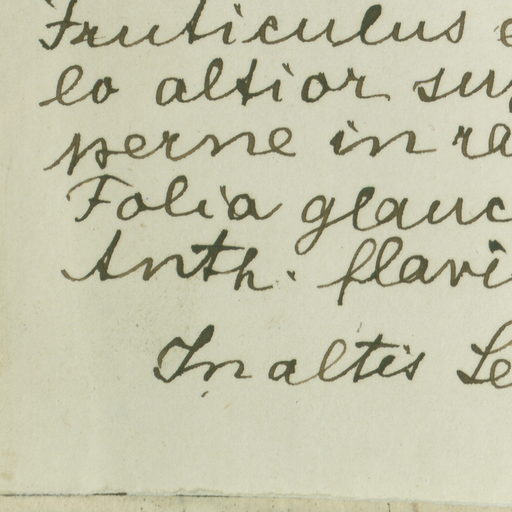 Fruticulus
lo altior su
perne in ra
Folia glauc
Anth. flavi
In altis Le